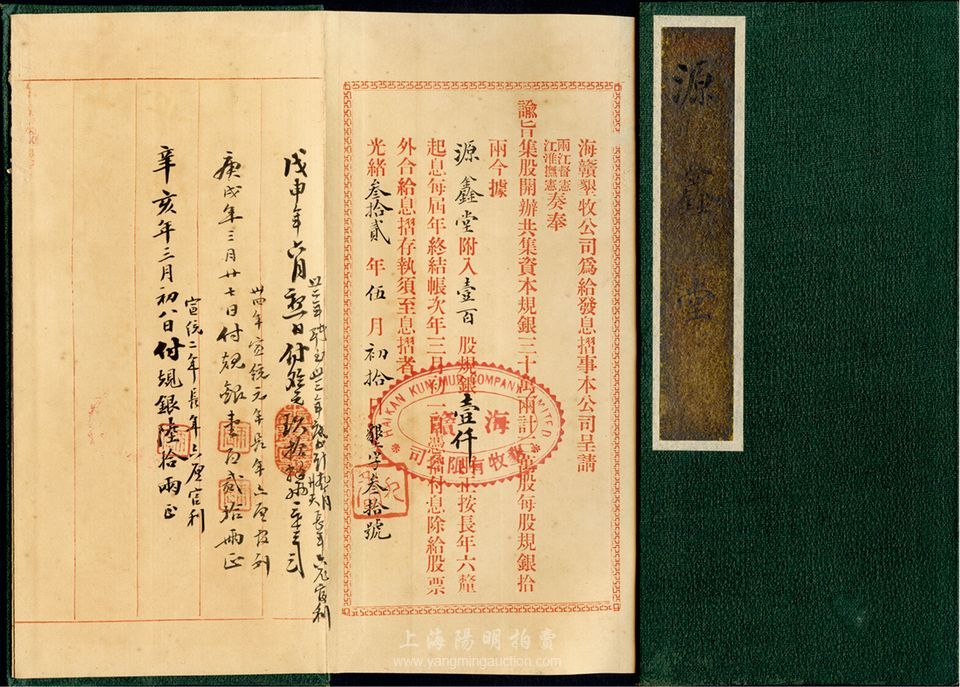 源鑫堂
海贛墾牧公司爲給發息摺事本公司呈請
兩江督憲
江淮撫憲
奏奉
諭旨集股開辦共集資本規銀三十萬兩計一萬股每股規銀拾
兩今據
源鑫堂附入壹百股規銀壹仟兩正按長年六釐
起息每屆年終結帳次年三月初一憑摺付息除給股票
外合給息摺存執須至息摺者
光緒叁拾貳年伍月初拾日 字叁拾號
HAIKAN KUN MUR COMPANY LIMITED
海贛
墾牧有限公司
戊申年 月 日付
卅四年宣統元年長年六厘官利
庚戌年三月廿七日付規銀壹百貳拾兩正
宣統二年長年六厘官利
辛亥年三月初八日付規銀陸拾兩正
上海陽明拍賣
www.yangmingauction.com